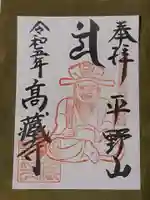 奉拝
平野山
高蔵寺
令和五年